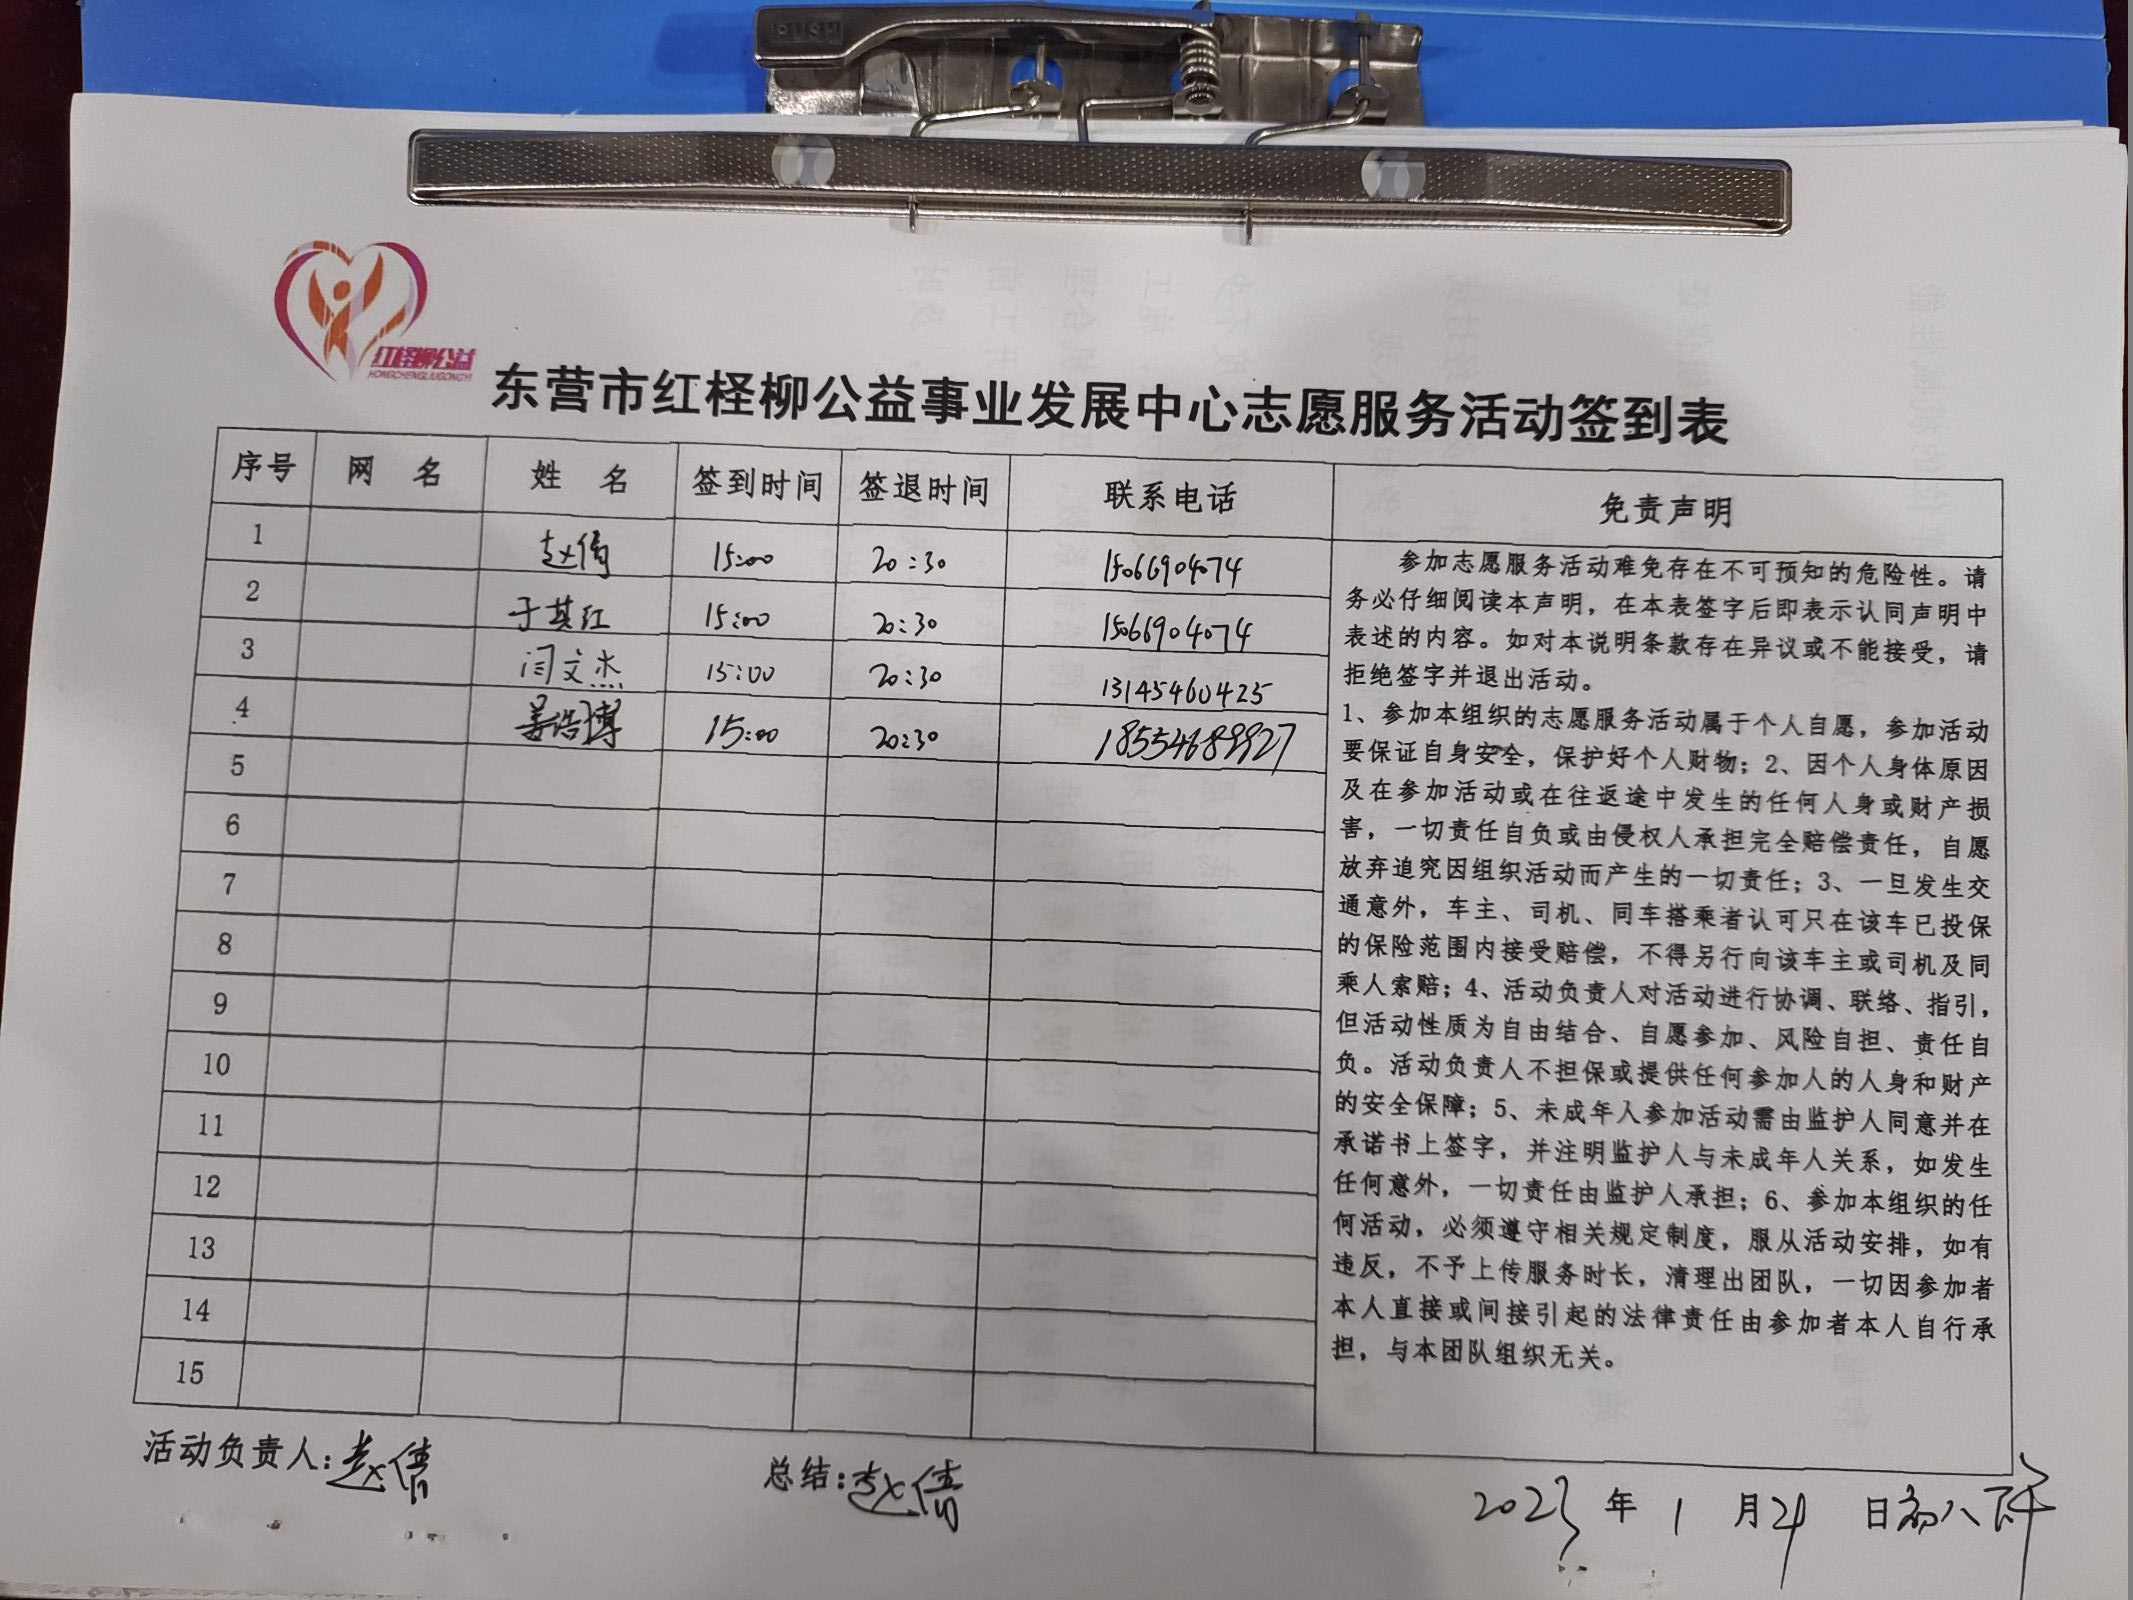 PUSH
红柽柳公益
HONGCHENGLIUGONGYI
东营市红柽柳公益事业发展中心志愿服务活动签到表
序号 网 名 姓 名 签到时间 签退时间 联系电话 免责声明
1 赵倩 15:00 20:30 15066904074
2 于其红 15:00 20:30 15066904074
3 闫文杰 15:00 20:30 13145460425
4 姜浩博 15:00 20:30 18554689927
5
6
7
8
9
10
11
12
13
14
15
参加志愿服务活动难免存在不可预知的危险性。请
务必仔细阅读本声明，在本表签字后即表示认同声明中
表述的内容。如对本说明条款存在异议或不能接受，请
拒绝签字并退出活动。
1、参加本组织的志愿服务活动属于个人自愿，参加活动
要保证自身安全，保护好个人财物；2、因个人身体原因
及在参加活动或在往返途中发生的任何人身或财产损
害，一切责任自负或由侵权人承担完全赔偿责任，自愿
放弃追究因组织活动而产生的一切责任；3、一旦发生交
通意外，车主、司机、同车搭乘者认可只在该车已投保
的保险范围内接受赔偿，不得另行向该车主或司机及同
乘人索赔；4、活动负责人对活动进行协调、联络、指引，
但活动性质为自由结合、自愿参加、风险自担、责任自
负。活动负责人不担保或提供任何参加人的人身和财产
的安全保障；5、未成年人参加活动需由监护人同意并在
承诺书上签字，并注明监护人与未成年人关系，如发生
任何意外，一切责任由监护人承担；6、参加本组织的任
何活动，必须遵守相关规定制度，服从活动安排，如有
违反，不予上传服务时长，清理出团队，一切因参加者
本人直接或间接引起的法律责任由参加者本人自行承
担，与本团队组织无关。
活动负责人：赵倩 总结：赵倩 2023 年 1 月 29 日初八下午